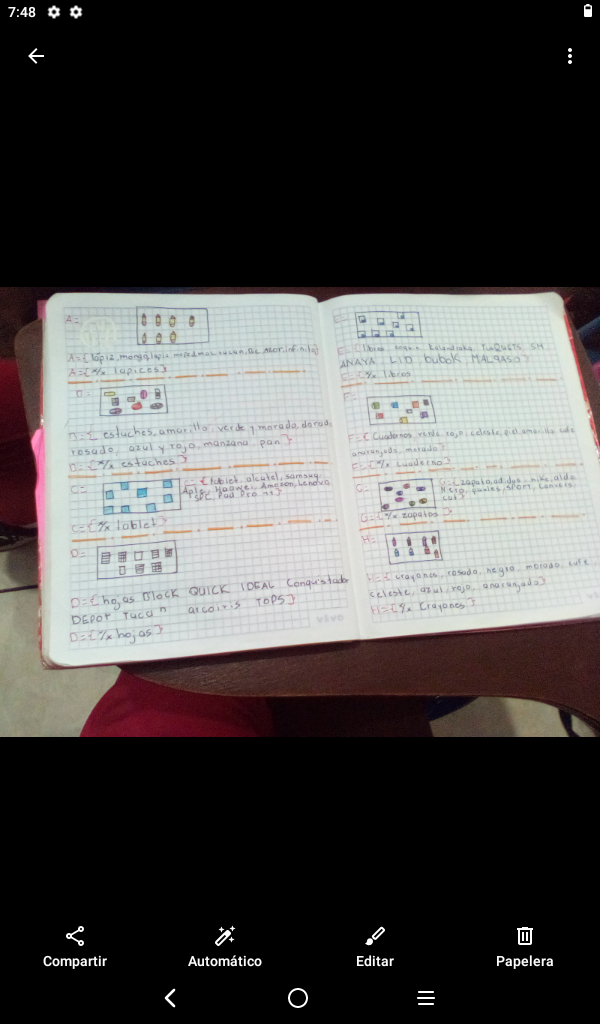 7:48
A=
A={lapiz, mongol
A={x/x lapices}
B=
B={estuches, amarillo, verde y morado, dorado
rosado, azul y rojo, manzana pan}
B={x/x estuches}
C=
C={tablet, alcatel, samsung
Apl Huawei, Amazon, Lenovo
SPC, Pad Pro
C={x/x tablet}
D=
D={hojas Block QUICK IDEAL Conquistador
DEPOT Tucan arcoiris TOPS}
D={x/x hojas}
vivo
E=
E={libros
ANAYA LID bubok MALPASO}
E={x/x libros
F=
F={Cuadernos verde, rojo, celeste, piel amarillo cafe
anaranjado, morado}
F={x/x cuaderno}
G=
G={zapato, adidas, nike, aldo
SPORT, Convers
G={x/x zapatos}
H=
H={crayones, rosado, negro, morado, cafe
celeste, azul, rojo, anaranjado}
H={x/x Crayones}
Compartir
Automático
Editar
Papelera